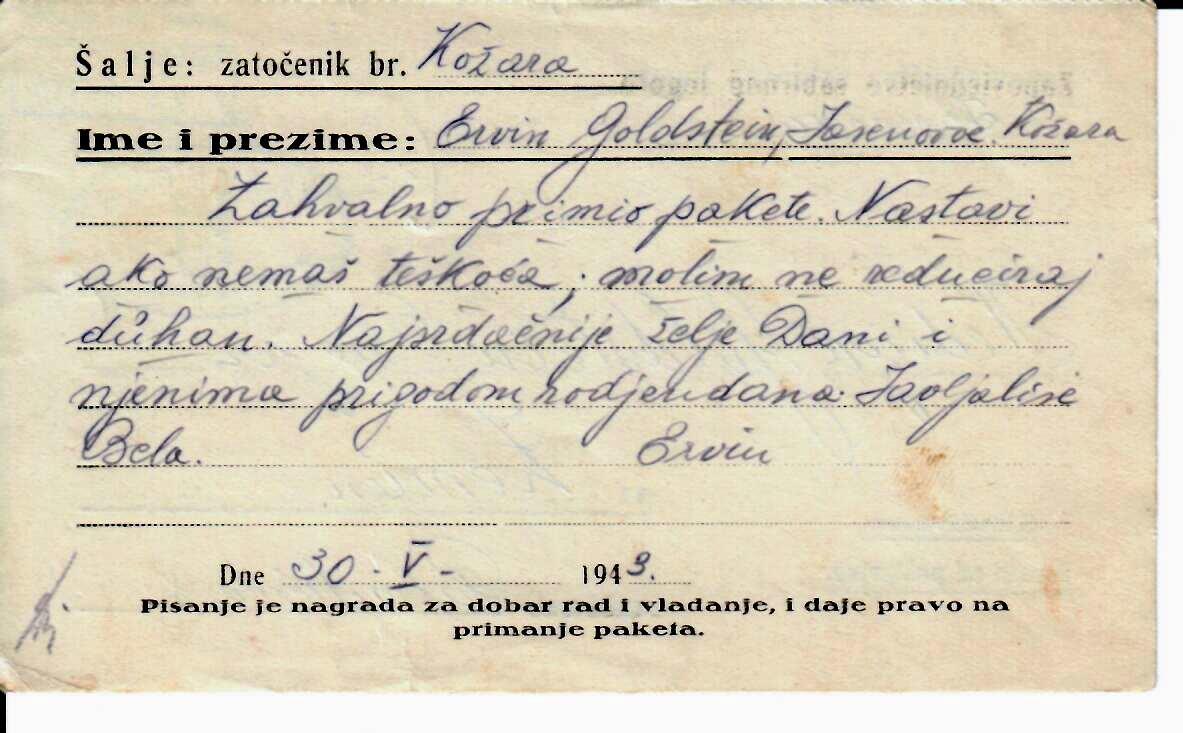 Šalje: zatočenik br. Kožara
Ime i prezime: Ervin Goldstein, Jasenovac. Kožara
Zahvalno primio pakete. Nastavi
ako nemaš teškoća; molim ne reduciraj
duhan. Najsrdačnije želje Dani i
njenima prigodom rodjendana. Javljalise
Bela. Ervin
Dne 30 - V - 1943.
Pisanje je nagrada za dobar rad i vladanje, i daje pravo na
primanje paketa.